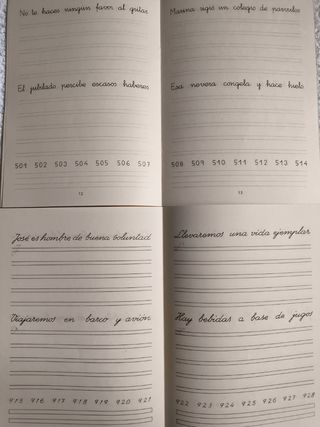 No te haces ningún favor al gritar
El jubilado percibe escasos haberes
501 502 503 504 505 506 507
12
Marina rigió un colegio de párvulos
Esa nevera congela y hace hielo
508 509 510 511 512 513 514
13
José es hombre de buena voluntad
Viajaremos en barco y avión
915 916 917 918 919 920 921
Llevaremos una vida ejemplar
Hay bebidas a base de jugos
922 923 924 925 926 927 928